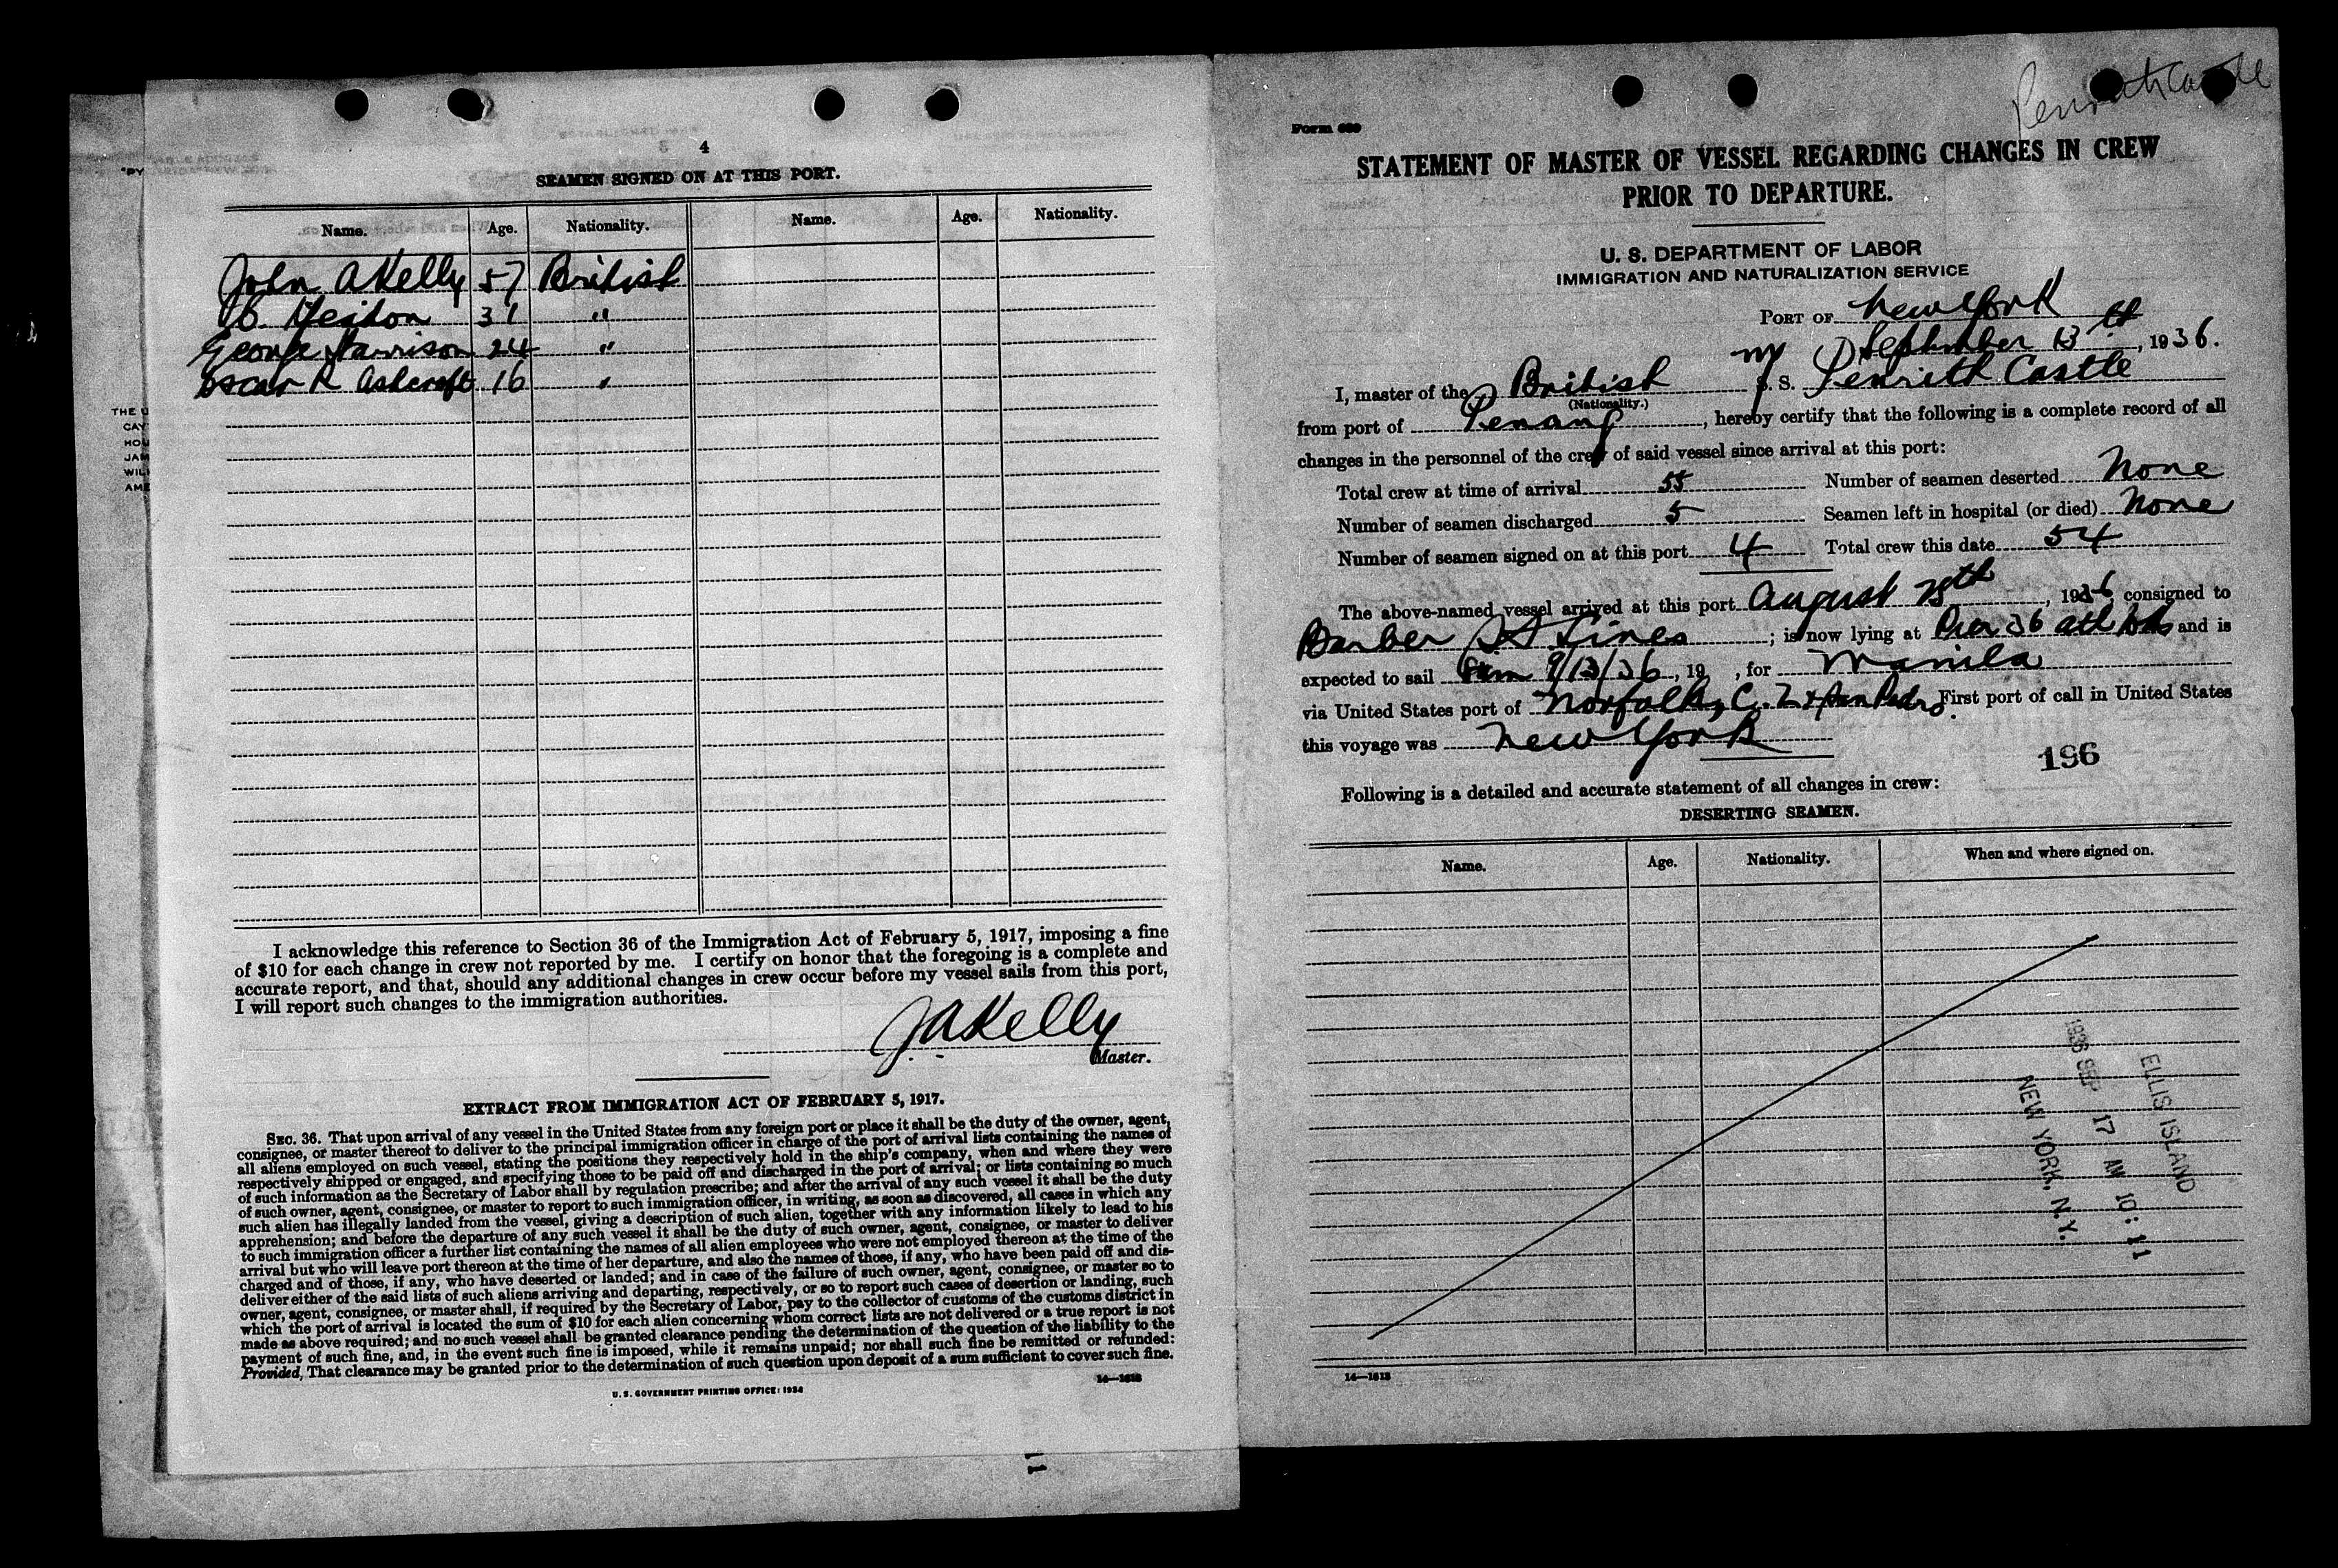 4
SEAMEN SIGNED ON AT THIS PORT.
Name. Age. Nationality. Name. Age. Nationality.
John A Kelly 57 British
31 "
George Harrison 24 "
Oscar R Ashcroft 16 "
I acknowledge this reference to Section 36 of the Immigration Act of February 5, 1917, imposing a fine
of $10 for each change in crew not reported by me. I certify on honor that the foregoing is a complete and
accurate report, and that, should any additional changes in crew occur before my vessel sails from this port,
I will report such changes to the immigration authorities.
J A Kelly
Master.
EXTRACT FROM IMMIGRATION ACT OF FEBRUARY 5, 1917.
SEC. 36. That upon arrival of any vessel in the United States from any foreign port or place it shall be the duty of the owner, agent,
consignee, or master thereof to deliver to the principal immigration officer in charge of the port of arrival lists containing the names of
all aliens employed on such vessel, stating the positions they respectively hold in the ship's company, when and where they were
respectively shipped or engaged, and specifying those to be paid off and discharged in the port of arrival; or lists containing so much
of such information as the Secretary of Labor shall by regulation prescribe; and after the arrival of any such vessel it shall be the duty
of such owner, agent, consignee, or master to report to such immigration officer, in writing, as soon as discovered, all cases in which any
such alien has illegally landed from the vessel, giving a description of such alien, together with any information likely to lead to his
apprehension; and before the departure of any such vessel it shall be the duty of such owner, agent, consignee, or master to deliver
to such immigration officer a further list containing the names of all alien employees who were not employed thereon at the time of the
arrival but who will leave port thereon at the time of her departure, and also the names of those, if any, who have been paid off and dis-
charged and of those, if any, who have deserted or landed; and in case of the failure of such owner, agent, consignee, or master so to
deliver either of the said lists of such aliens arriving and departing, respectively, or so to report such cases of desertion or landing, such
owner, agent, consignee, or master shall, if required by the Secretary of Labor, pay to the collector of customs of the customs district in
which the port of arrival is located the sum of $10 for each alien concerning whom correct lists are not delivered or a true report is not
made as above required; and no such vessel shall be granted clearance pending the determination of the question of the liability to the
payment of such fine, and, in the event such fine is imposed, while it remains unpaid; nor shall such fine be remitted or refunded:
Provided, That clearance may be granted prior to the determination of such question upon deposit of a sum sufficient to cover such fine.
U. S. GOVERNMENT PRINTING OFFICE: 1934
14—1613
11
"PY
THE U
CAY
HOU
JAM
WILL
AME
Penrith Castle
Form 689
STATEMENT OF MASTER OF VESSEL REGARDING CHANGES IN CREW
PRIOR TO DEPARTURE.
U. S. DEPARTMENT OF LABOR
IMMIGRATION AND NATURALIZATION SERVICE
PORT OF New York
September 13th, 1936.
I, master of the British M S. Penrith Castle
(Nationality.)
from port of Penang, hereby certify that the following is a complete record of all
changes in the personnel of the crew of said vessel since arrival at this port:
Total crew at time of arrival 55 Number of seamen deserted None
Number of seamen discharged 5 Seamen left in hospital (or died) None
Number of seamen signed on at this port 4 Total crew this date 54
The above-named vessel arrived at this port August th, 1936, consigned to
Barber SS Lines; is now lying at Pier 36 and is
expected to sail 9/13/36, 19 , for Manila
via United States port of Norfolk, C. Z. & San Pedro. First port of call in United States
this voyage was New York
196
Following is a detailed and accurate statement of all changes in crew:
DESERTING SEAMEN.
Name. Age. Nationality. When and where signed on.
ELLIS ISLAND
1936 SEP 17 AM 10:11
NEW YORK, N.Y.
14—1613